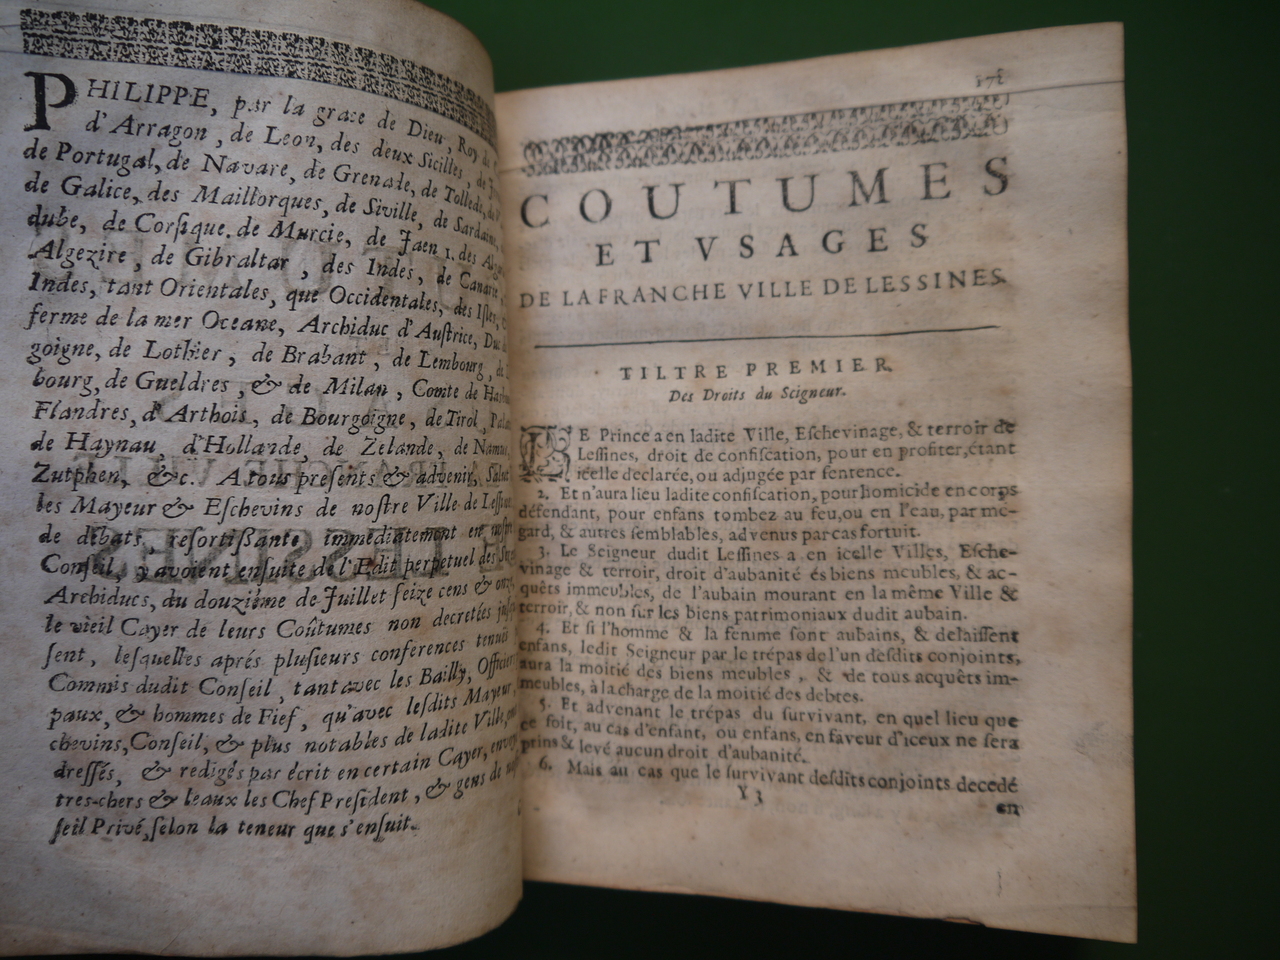 PHILIPPE, par la grace de Dieu, Roy de
d'Arragon, de Leon, des deux Sicilles, de
de Portugal, de Navare, de Grenade, de Tollede, de
de Galice, des Maillorques, de Siville, de Sardaine,
dube, de Corsique, de Murcie, de Jaen, des
Algezire, de Gibraltar, des Indes, de Canarie,
Indes, tant Orientales, que Occidentales, des Isles,
ferme de la mer Oceane, Archiduc d'Austrice, Duc de
goigne, de Lothier, de Brabant, de Lembourg, de
bourg, de Gueldres, & de Milan, Comte de
Flandres, d'Arthois, de Bourgoigne, de Tirol,
de Haynau, d'Hollande, de Zelande, de Namur,
Zutphen, &c. A tous presents & advenir, Salut
les Mayeur & Eschevins de nostre Ville de
de debats, resortissante immediatement en nostre
Conseil, y avoient ensuite de l'Edit perpetuel des
Archiducs, du douziéme de Juillet seize cens & onze,
le vieil Cayer de leurs Coûtumes non decretées
sent, lesquelles aprés plusieurs conferences tenuës
Commis dudit Conseil, tant avec les Bailly, Officier
paux, & hommes de Fief, qu'avec lesdits Mayeur,
chevins, Conseil, & plus notables de ladite Ville,
dressés, & redigés par écrit en certain Cayer,
tres-chers & leaux les Chef President, & gens de
seil Privé, selon la teneur que s'ensuit.
COUTUMES
ET VSAGES
DE LA FRANCHE VILLE DE LESSINES.
TILTRE PREMIER.
Des Droits du Seigneur.
LE Prince a en ladite Ville, Eschevinage, & terroir de
Lessines, droit de confiscation, pour en profiter, étant
icelle declarée, ou adjugée par sentence.
2. Et n'aura lieu ladite confiscation, pour homicide en corps
défendant, pour enfans tombez au feu, ou en l'eau, par me-
gard, & autres semblables, advenus par cas fortuit.
3. Le Seigneur dudit Lessines a en icelle Villes, Esche-
vinage & terroir, droit d'aubanité és biens meubles, & ac-
quêts immeubles, de l'aubain mourant en la même Ville &
terroir, & non sur les biens patrimoniaux dudit aubain.
4. Et si l'homme & la femme sont aubains, & delaissent
enfans, ledit Seigneur par le trépas de l'un desdits conjoints,
aura la moitié des biens meubles, & de tous acquêts im-
meubles, à la charge de la moitié des debtes.
5. Et advenant le trépas du survivant, en quel lieu que
ce soit, au cas d'enfant, ou enfans, en faveur d'iceux ne sera
prins & levé aucun droit d'aubanité.
6. Mais au cas que le survivant desdits conjoints decedé
Y 3
en